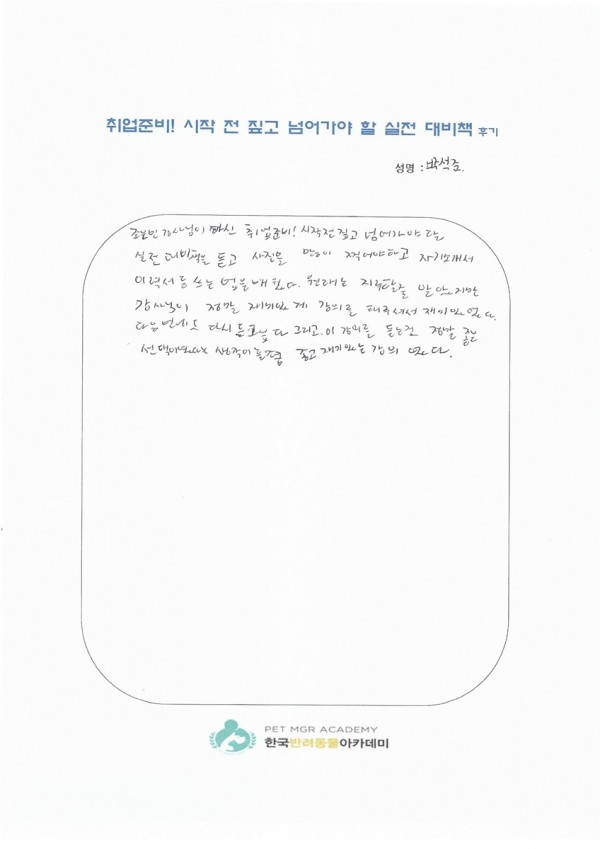 취업준비! 시작 전 짚고 넘어가야 할 실전 대비책 후기
성명 : 박석준.
강사님이 하신 취업준비! 시작전 짚고 넘어가야 할
실전 대비책을 듣고 사진을 많이 찍어야하고 자기소개서
이력서 등 쓰는 법을 배웠다. 원래는 지루할줄 알았지만
강사님이 정말 재미있게 강의를 해주셔서 재미있었다.
다음번에도 다시 듣고싶다 그리고. 이 강의를 듣는건 정말 좋은
선택이였다는 생각이 들 좋고 재미있는 강의 였다.
PET MGR ACADEMY
한국반려동물아카데미